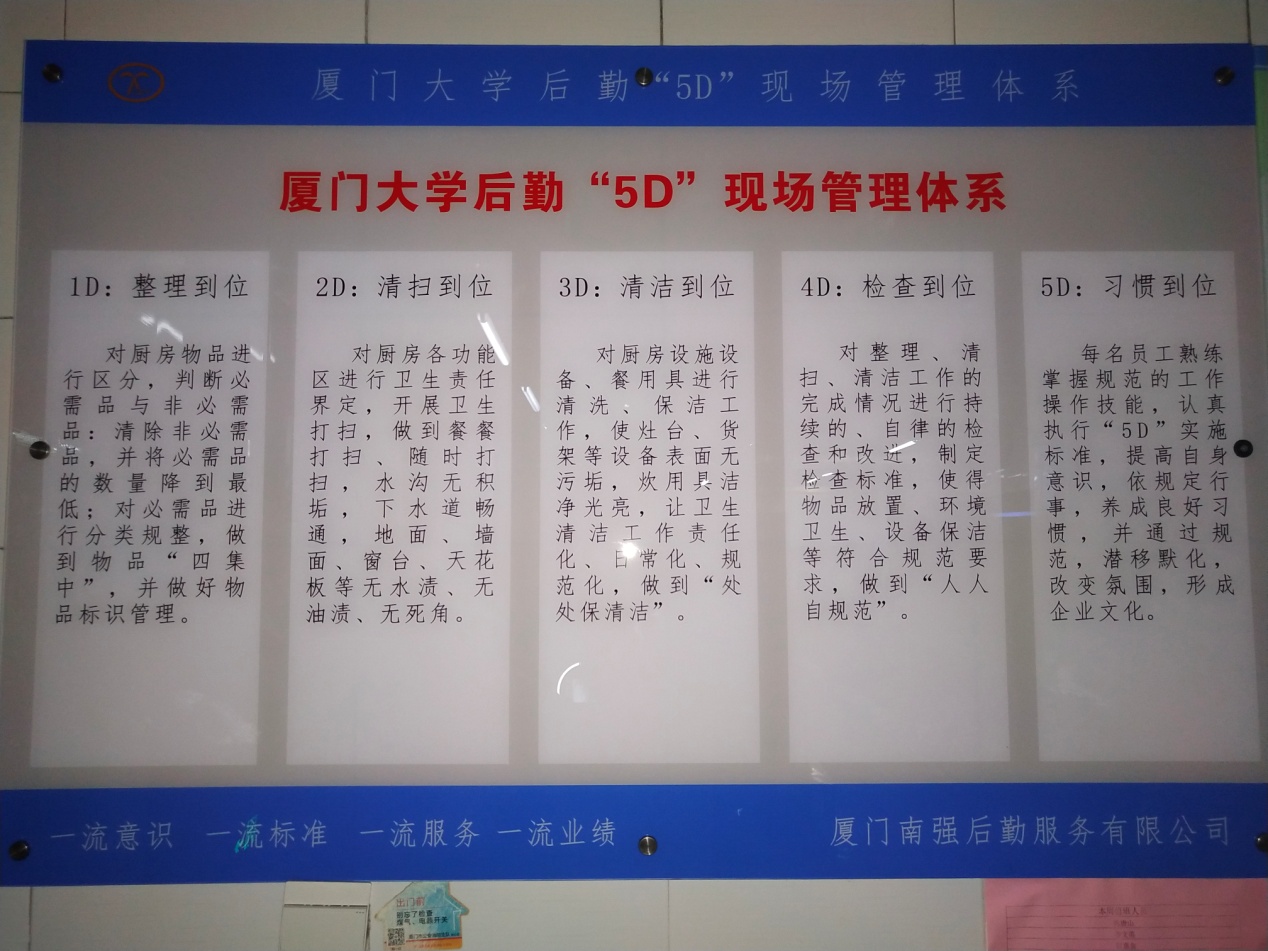 厦门大学后勤“5D”现场管理体系
厦门大学后勤“5D”现场管理体系
1D：整理到位
对厨房物品进
行区分，判断必
需品与非必需
品：清除非必需
品，并将必需品
的数量降到最
低；对必需品进
行分类规整，做
到物品“四集
中”，并做好物
品标识管理。
2D：清扫到位
对厨房各功能
区进行卫生责任
界定，开展卫生
打扫，做到餐餐
打扫、随时打
扫，水沟无积
垢，下水道畅
通，地面、墙
面、窗台、天花
板等无水渍、无
油渍、无死角。
3D：清洁到位
对厨房设施设
备、餐用具进行
清洗、保洁工
作，使灶台、货
架等设备表面无
污垢，炊用具洁
净光亮，让卫生
清洁工作责任
化、日常化、规
范化，做到“处
处保清洁”。
4D：检查到位
对整理、清
扫、清洁工作的
完成情况进行持
续的、自律的检
查和改进，制定
检查标准，使得
物品放置、环境
卫生、设备保洁
等符合规范要
求，做到“人人
自规范”。
5D：习惯到位
每名员工熟练
掌握规范的工作
操作技能，认真
执行“5D”实施
标准，提高自身
意识，依规定行
事，养成良好习
惯，并通过规
范，潜移默化，
改变氛围，形成
企业文化。
一流意识 一流标准 一流服务 一流业绩
厦门南强后勤服务有限公司
出门前
别忘了检查
煤气、电器开关